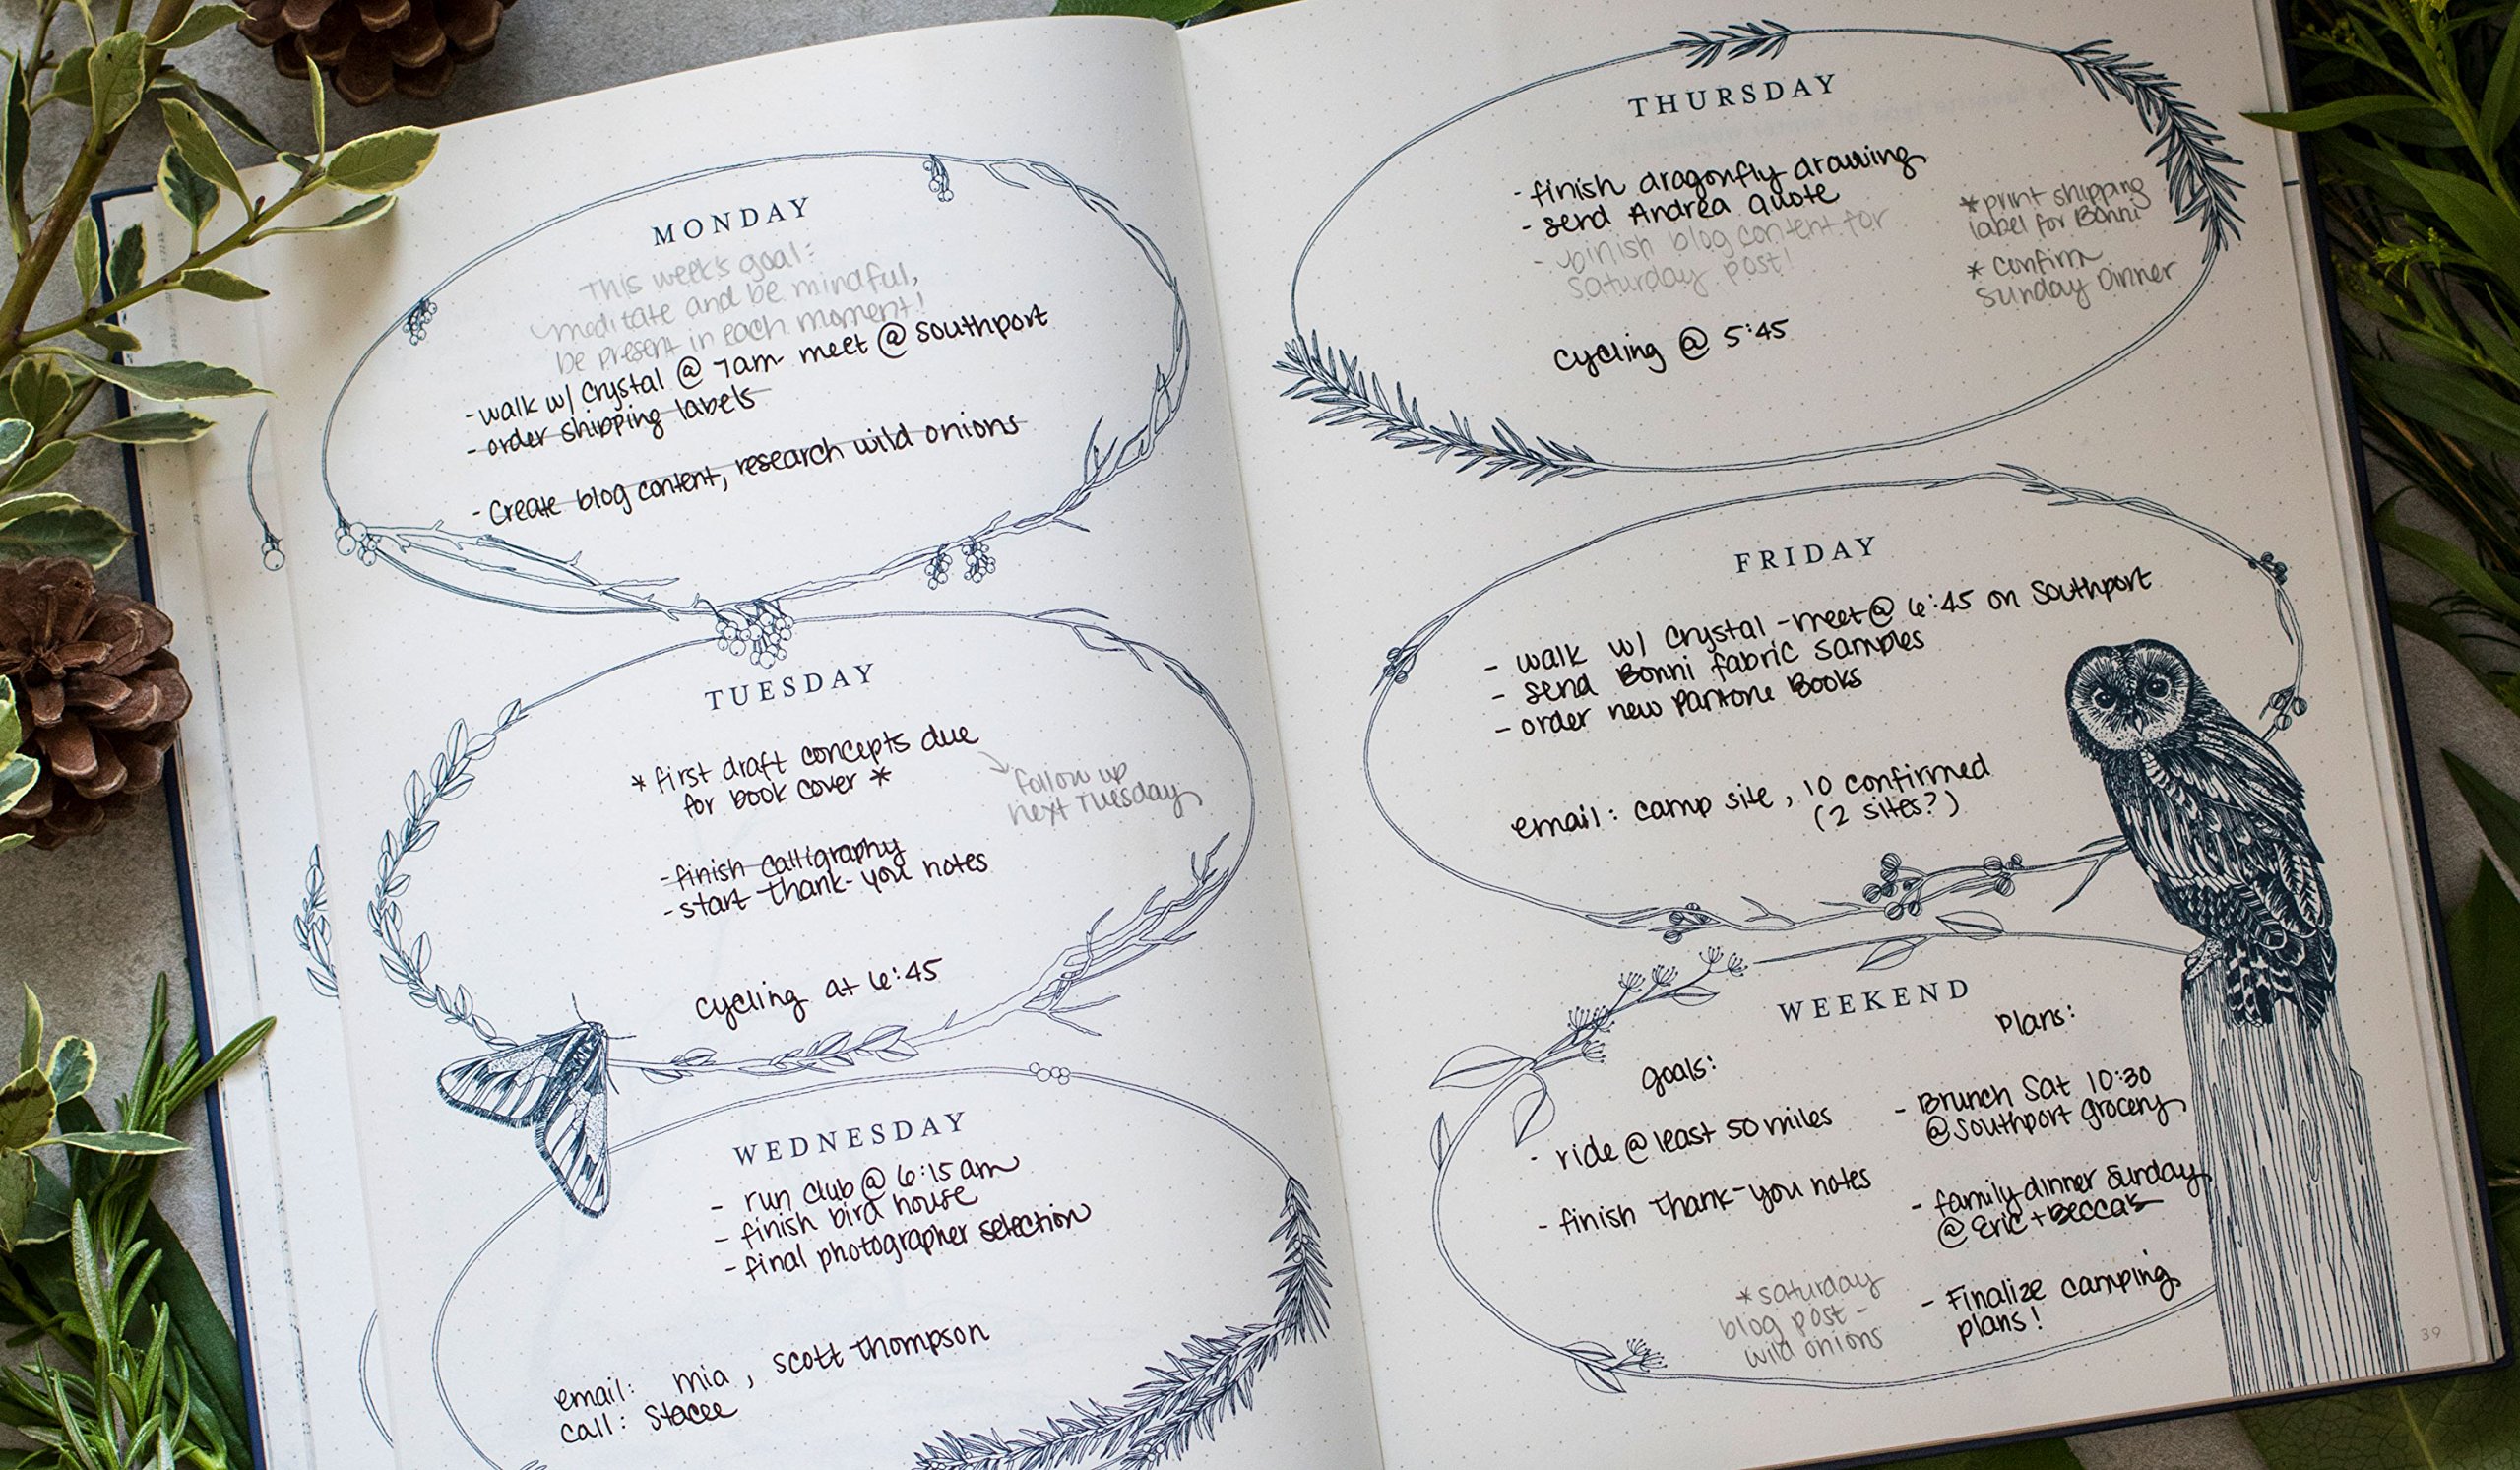 MONDAY
This week's goal:
meditate and be mindful,
be present in each moment!
- walk w/ Crystal @ 7am meet @ Southport
- order shipping labels
- Create blog content, research wild onions
TUESDAY
* first draft concepts due
for book cover *
follow up
next Tuesday
- finish calligraphy
- start thank-you notes
cycling at 6:45
WEDNESDAY
- run club @ 6:15 am
- finish bird house
- final photographer selection
email: mia, scott thompson
call: Stacee
THURSDAY
- finish dragonfly drawing
- send Andrea quote
- finish blog content for
Saturday post!
* print shipping
label for Bonni
* confirm
Sunday Dinner
cycling @ 5:45
FRIDAY
- walk w/ Crystal - meet @ 6:45 on Southport
- send Bonni fabric samples
- order new Pantone Books
email: camp site, 10 confirmed
(2 sites?)
WEEKEND
goals:
- ride @ least 50 miles
- finish thank-you notes
* Saturday
blog post -
wild onions
Plans:
- Brunch Sat 10:30
@ Southport grocery
- family dinner Sunday
@ Eric + Becca's
- Finalize camping
plans!
39